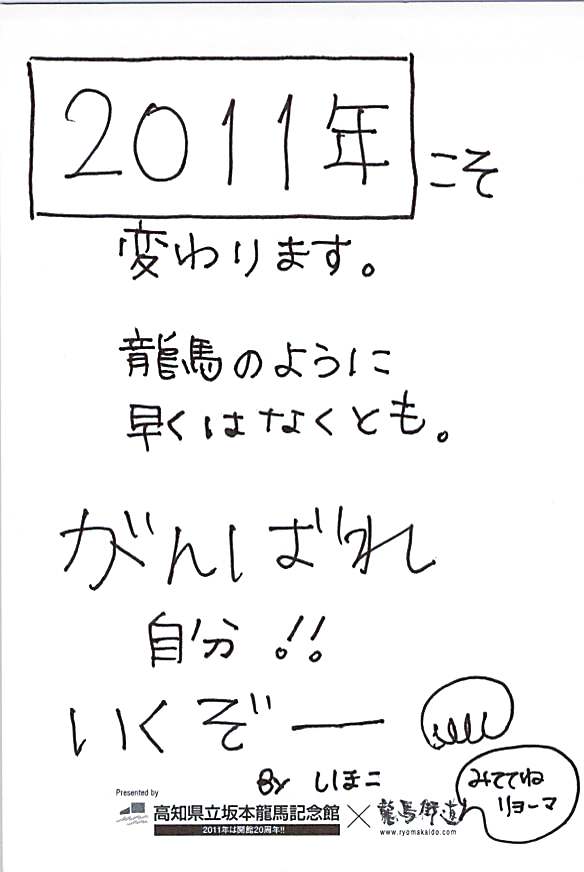 2011年こそ
変わります。
龍馬のように
早くはなくとも。
がんばれ
自分!!
いくぞー
By しまこ
みててね
リョーマ
Presented by
高知県立坂本龍馬記念館 × 龍馬街道
2011年は開館20周年!!
www.ryomakaido.com